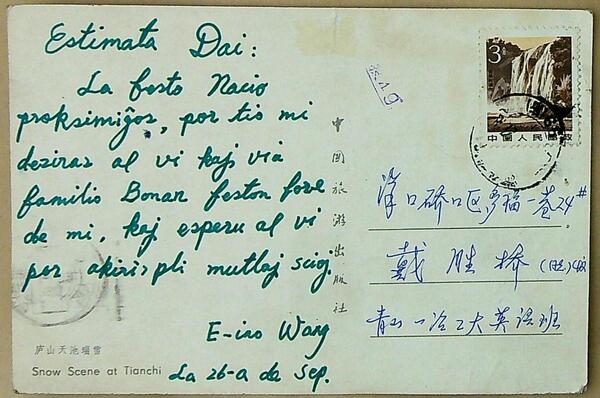 Estimata Dai:
La festo Nacio
proksimiĝos, por tio mi
deziras al vi kaj via
familio Bonan feston fore
de mi, kaj esperu al vi
por akiri pli multaj scioj
E-ino Wang
La 26-a de Sep.
庐山天池瑞雪
Snow Scene at Tianchi
中国旅游出版社
3分
中国人民邮政
汉口硚口区多福一巷24#
戴胜桥
青山一冶工大英语班